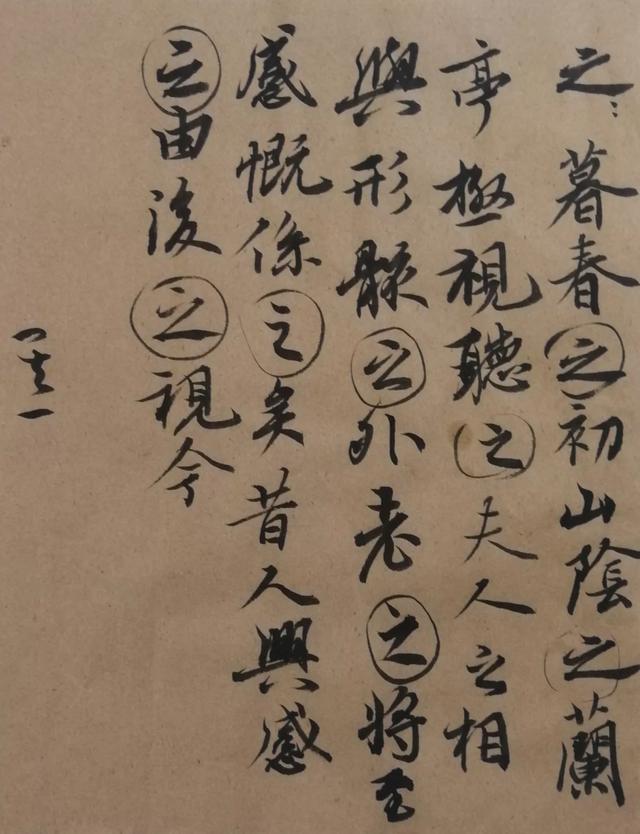 之：暮春之初山陰之蘭
亭極視聽之夫人之相
與形骸之外老之將至
感慨係之矣昔人興感
之由後之視今